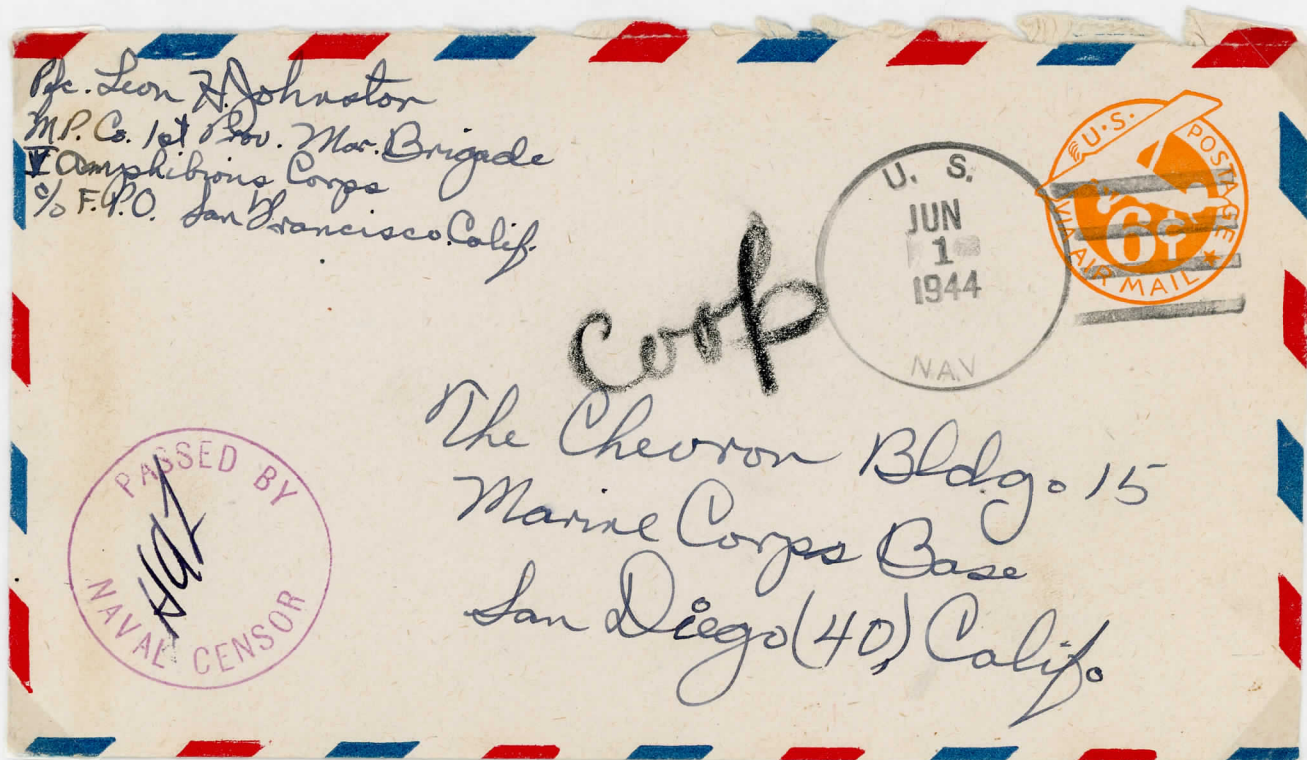 Pfc. Leon H. Johnston
M.P. Co. 1st Prov. Mar. Brigade
V Amphibious Corps
c/o F.P.O. San Francisco. Calif.
U.S. POSTAGE
6¢
VIA AIR MAIL
U. S.
JUN
1
1944
NAV
Corp
The Chevron Bldg. 15
Marine Corps Base
San Diego (40) Calif.
PASSED BY
NAVAL CENSOR